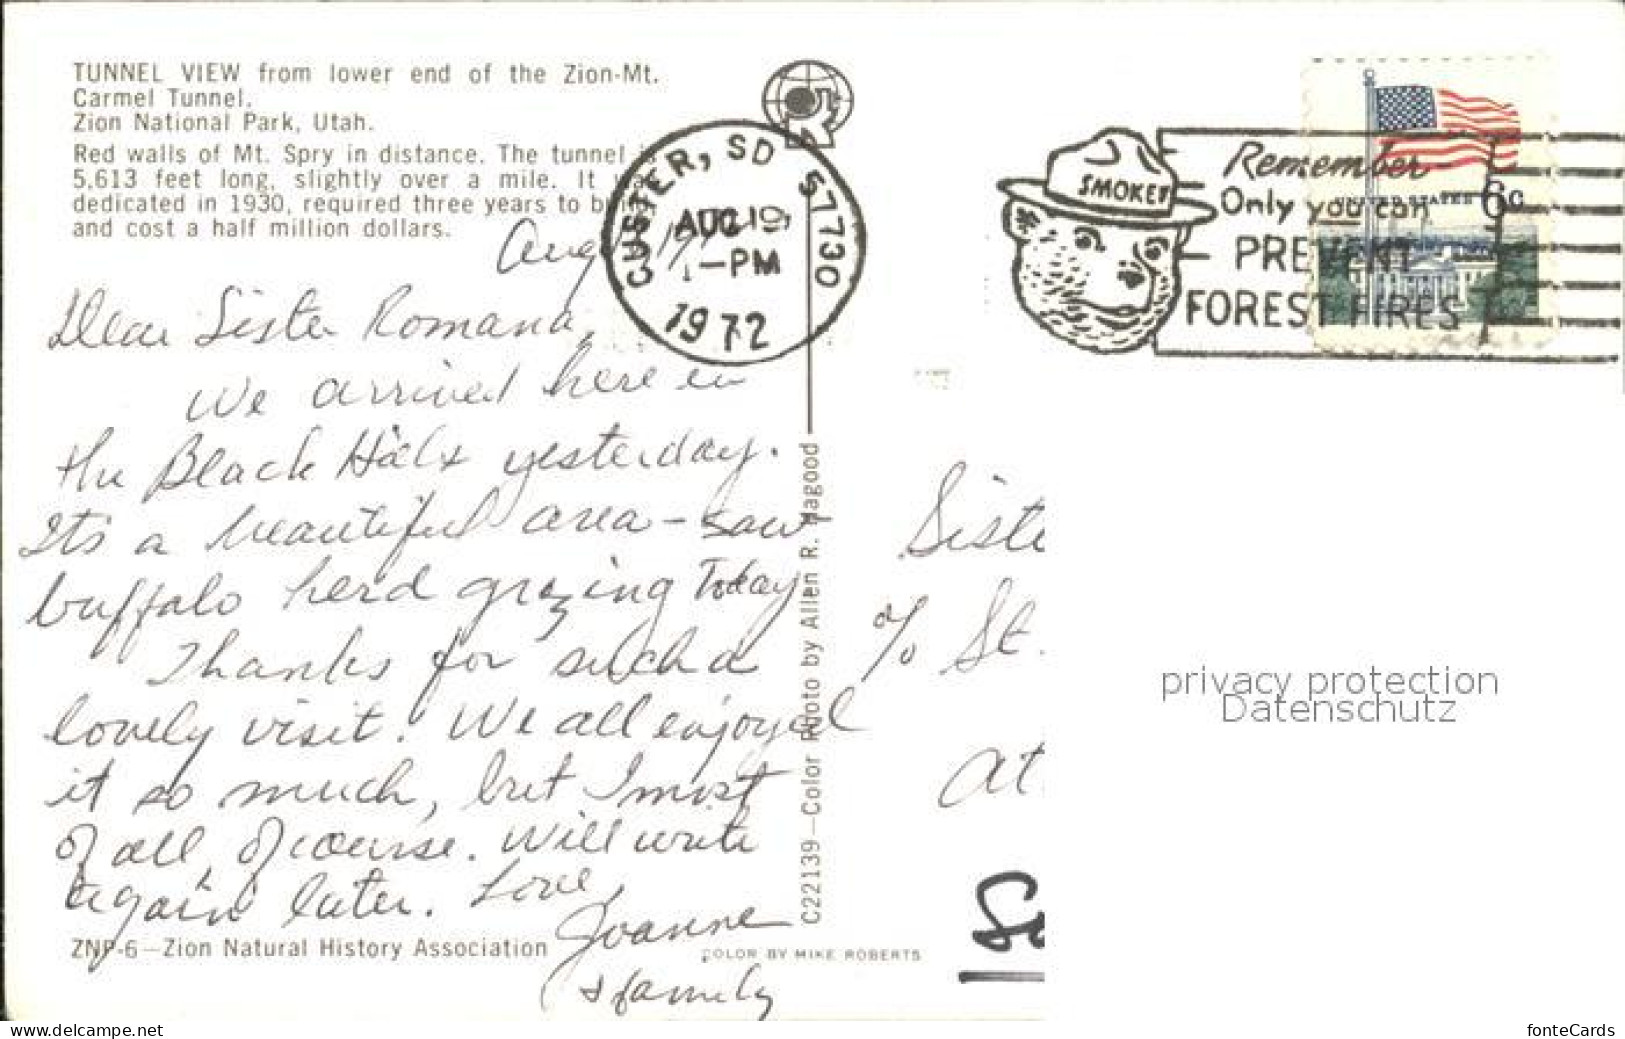 TUNNEL VIEW from lower end of the Zion-Mt.
Carmel Tunnel.
Zion National Park, Utah.
Red walls of Mt. Spry in distance. The tunnel is
5,613 feet long, slightly over a mile. It was
dedicated in 1930, required three years to build
and cost a half million dollars.
CUSTER, SD 57730
AUG 19
PM
1972
SMOKEY
Remember
Only you can
PREVENT
FOREST FIRES
UNITED STATES 6c
Aug
Dear Sister Romana,
We arrived here in
the Black Hills yesterday.
It's a beautiful area - saw
buffalo herd grazing today
Thanks for such a
lovely visit. We all enjoyed
it so much, but I most
of all, of course. Will write
again later. Love,
Joanne
& family
C22139—Color Photo by Allen R. Hagood
ZNP-6—Zion Natural History Association
COLOR BY MIKE ROBERTS
Siste
% St.
At
privacy protection
Datenschutz
www.delcampe.net
fonteCards